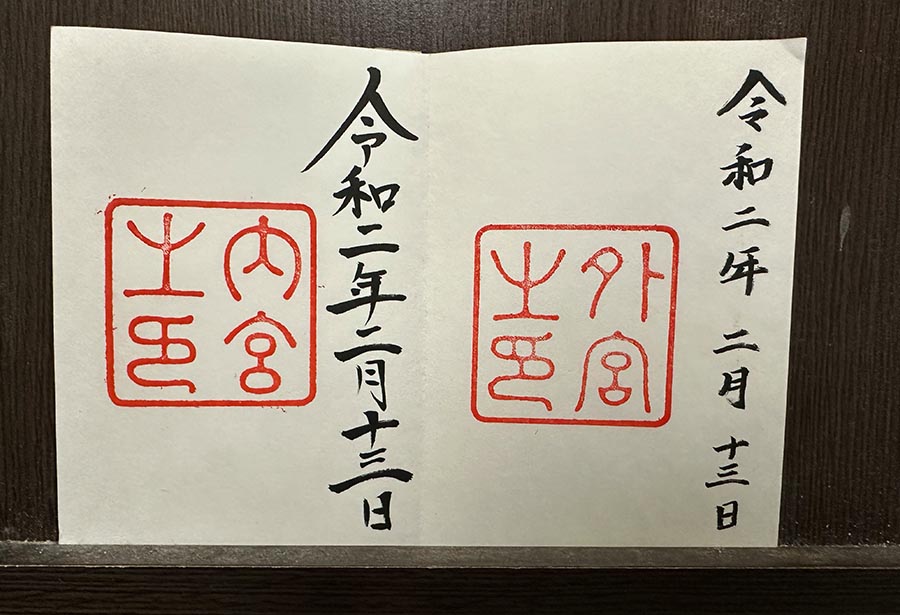 令和二年 二月 十三日
外宮
之印
令和二年二月十三日
内宮
之印